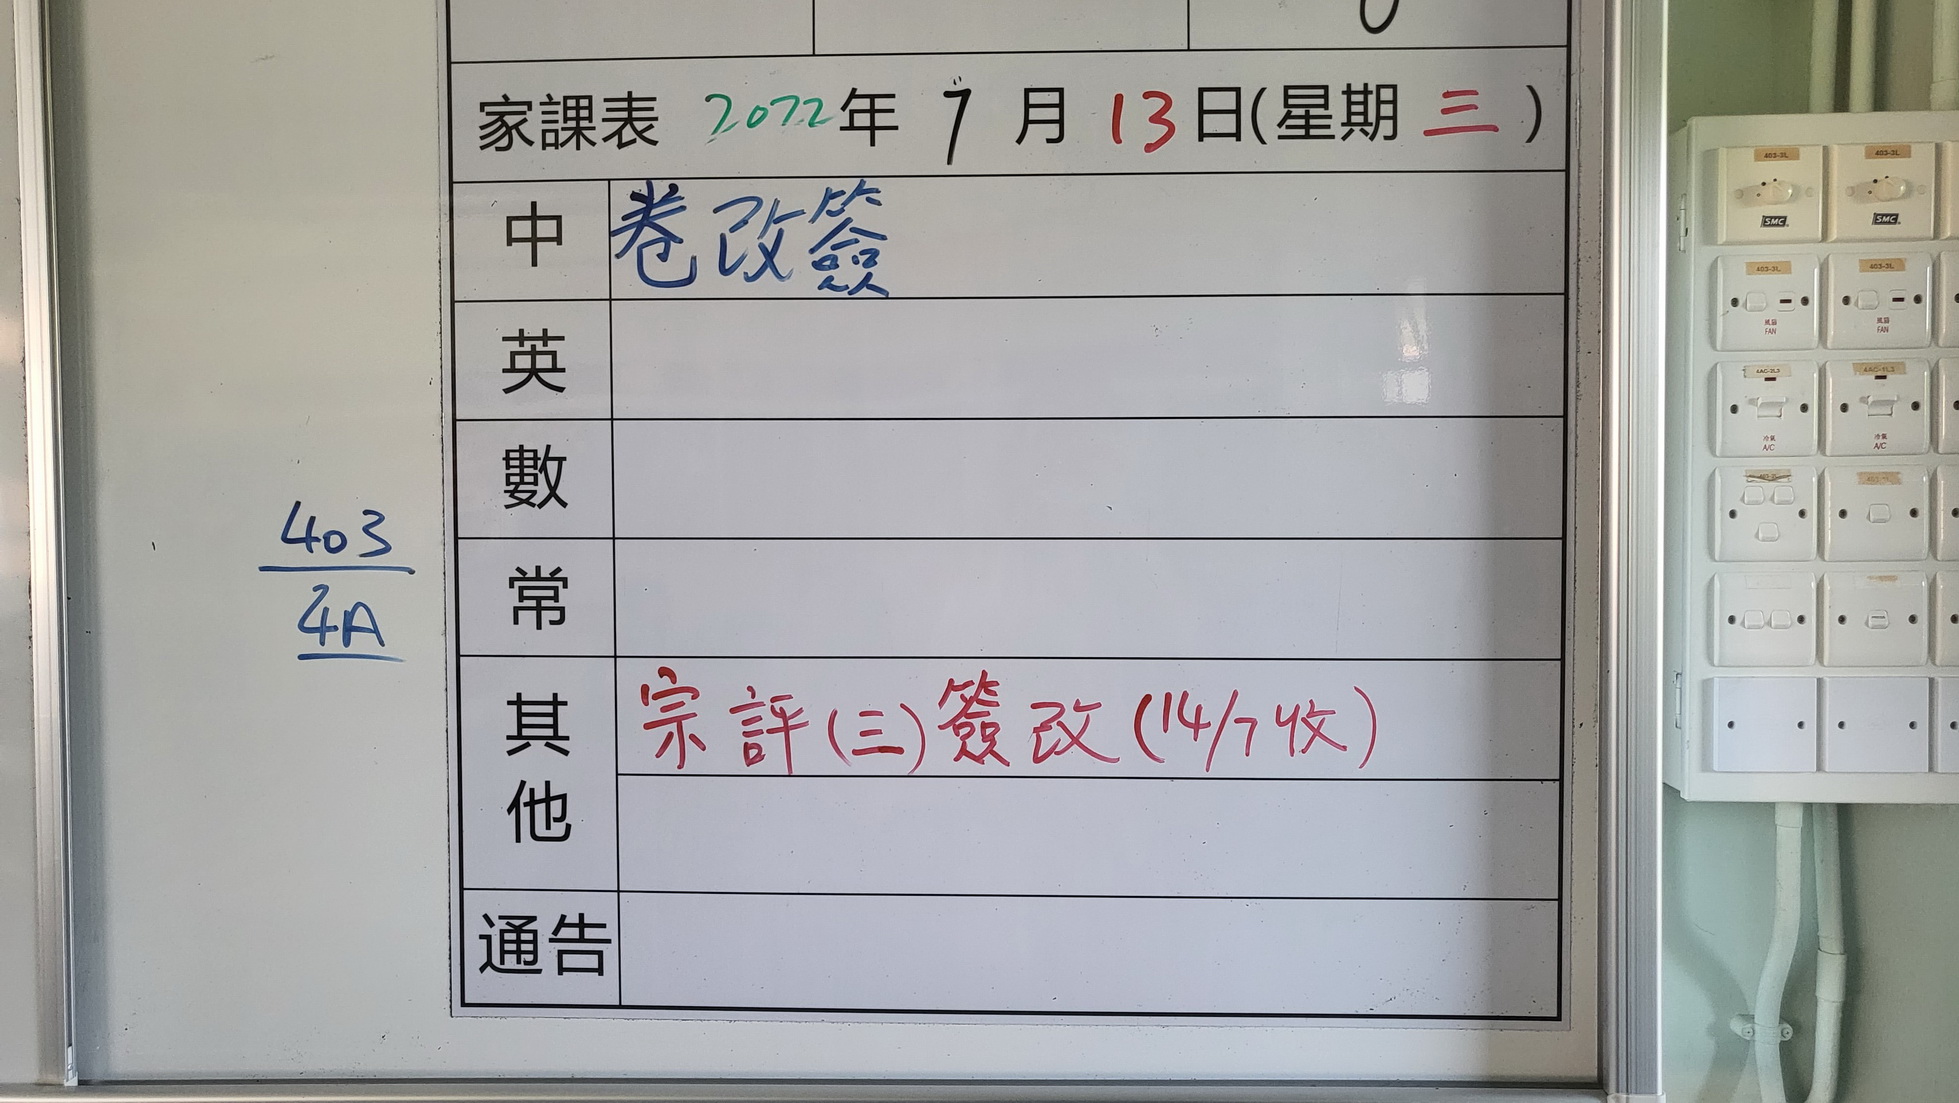 家課表 2022年 7 月 13日(星期 三 )
中 卷改簽
英
數
403
4A
常
其他 宗評(三)簽改(14/7收)
通告
403-3L 403-3L
SMC SMC
403-3L 403-3L
風扇 FAN 風扇 FAN
4AC-2L3 4AC-1L3
冷氣 A/C 冷氣 A/C